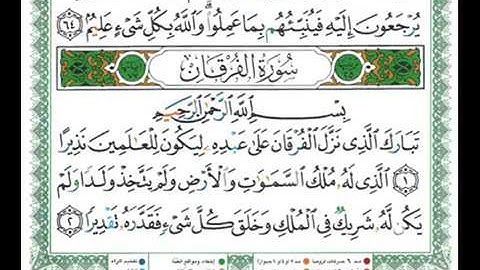 يُرْجَعُونَ إِلَيْهِ فَيُنَبِّئُهُم بِمَا عَمِلُوا۟ ۗ وَٱللَّهُ بِكُلِّ شَىْءٍ عَلِيمٌۢ ٦٤
سُورَةُ الفُرْقَانِ
بِسْمِ ٱللَّهِ ٱلرَّحْمَٰنِ ٱلرَّحِيمِ
تَبَارَكَ ٱلَّذِى نَزَّلَ ٱلْفُرْقَانَ عَلَىٰ عَبْدِهِۦ لِيَكُونَ لِلْعَٰلَمِينَ نَذِيرًا
١ ٱلَّذِى لَهُۥ مُلْكُ ٱلسَّمَٰوَٰتِ وَٱلْأَرْضِ وَلَمْ يَتَّخِذْ وَلَدًا وَلَمْ
يَكُن لَّهُۥ شَرِيكٌ فِى ٱلْمُلْكِ وَخَلَقَ كُلَّ شَىْءٍ فَقَدَّرَهُۥ تَقْدِيرًا ٢